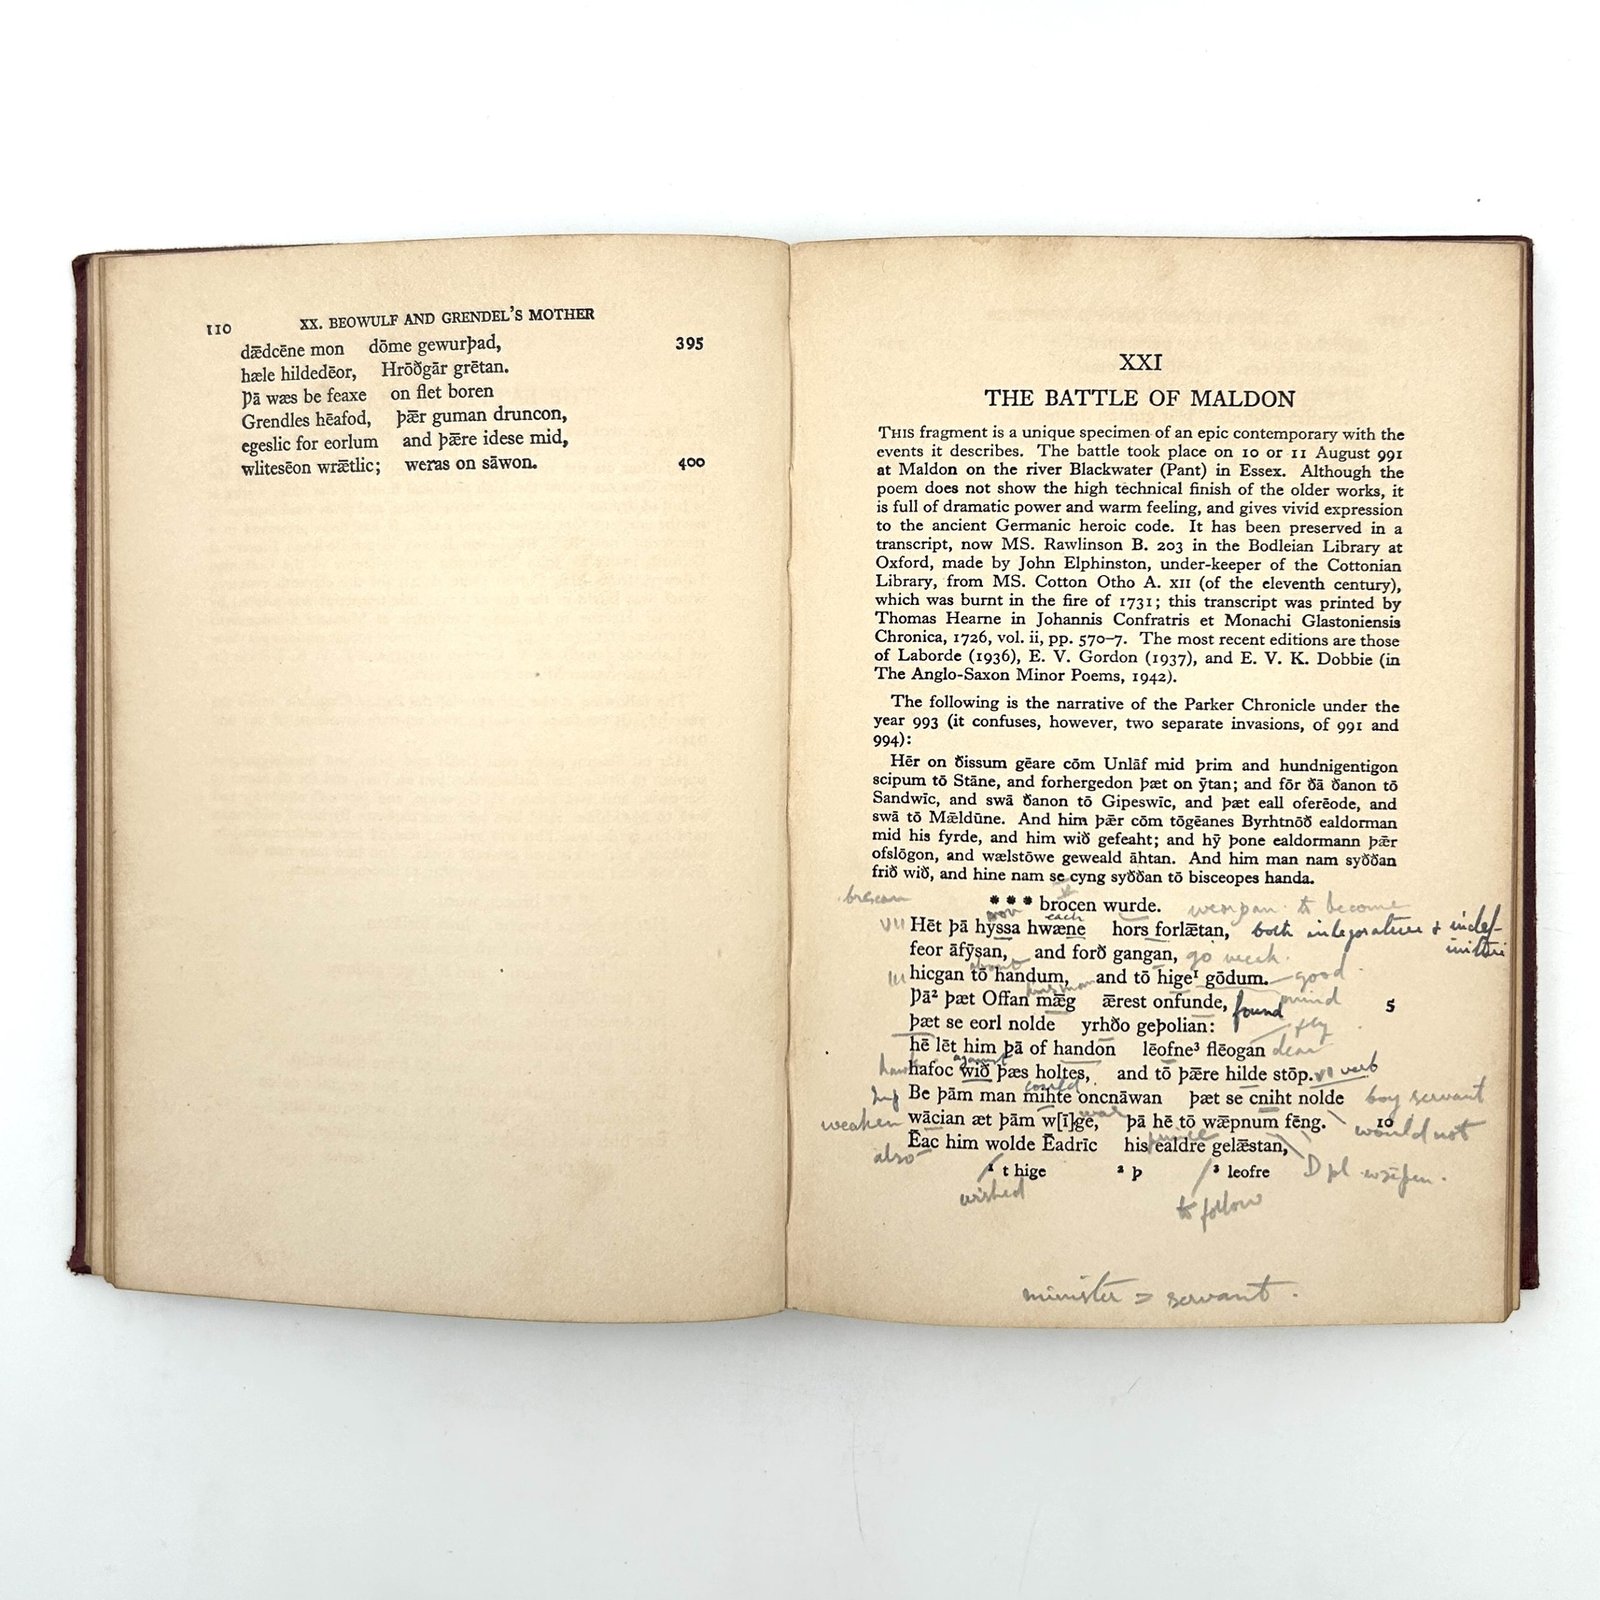 110 XX. BEOWULF AND GRENDEL'S MOTHER
dǣdcēne mon dōme gewurþad, 395
hæle hildedēor, Hrōðgār grētan.
Þā wæs be feaxe on flet boren
Grendles hēafod, þǣr guman druncon,
egeslic for eorlum and þǣre idese mid,
wlitesēon wrǣtlic; weras on sāwon. 400
XXI
THE BATTLE OF MALDON
THIS fragment is a unique specimen of an epic contemporary with the
events it describes. The battle took place on 10 or 11 August 991
at Maldon on the river Blackwater (Pant) in Essex. Although the
poem does not show the high technical finish of the older works, it
is full of dramatic power and warm feeling, and gives vivid expression
to the ancient Germanic heroic code. It has been preserved in a
transcript, now MS. Rawlinson B. 203 in the Bodleian Library at
Oxford, made by John Elphinston, under-keeper of the Cottonian
Library, from MS. Cotton Otho A. XII (of the eleventh century),
which was burnt in the fire of 1731; this transcript was printed by
Thomas Hearne in Johannis Confratris et Monachi Glastoniensis
Chronica, 1726, vol. ii, pp. 570–7. The most recent editions are those
of Laborde (1936), E. V. Gordon (1937), and E. V. K. Dobbie (in
The Anglo-Saxon Minor Poems, 1942).
The following is the narrative of the Parker Chronicle under the
year 993 (it confuses, however, two separate invasions, of 991 and
994):
Hēr on ðissum gēare cōm Unlāf mid þrim and hundnigentigon
scipum tō Stāne, and forhergedon þæt on ȳtan; and fōr ðā ðanon tō
Sandwīc, and swā ðanon tō Gipeswīc, and þæt eall oferēode, and
swā tō Mǣldūne. And him þǣr cōm tōgēanes Byrhtnōð ealdorman
mid his fyrde, and him wið gefeaht; and hȳ þone ealdormann þǣr
ofslōgon, and wælstōwe geweald āhtan. And him man nam syððan
frið wið, and hine nam se cyng syððan tō bisceopes handa.
*** brocen wurde. to become
each
VII Hēt þā hyssa hwæne hors forlǣtan, both
feor āfȳsan, and forð gangan, go
about
III hicgan tō handum, and tō hige¹ gōdum. good
kinsman
Þā² þæt Offan mǣg ǣrest onfunde, found mind 5
þæt se eorl nolde yrhðo geþolian: fly
hē lēt him þā of handon lēofne³ flēogan dear
against
hawk hafoc wið þæs holtes, and tō þǣre hilde stōp. verb
could
Be þām man mihte oncnāwan þæt se cniht nolde boy servant
war
weaken wācian æt þām w[ī]ge, þā hē tō wǣpnum fēng. 10 would not
prince
Ēac him wolde Ēadrīc his ealdre gelǣstan,
also
¹ t hige ² þ ³ leofre D pl wǣpen.
wished to follow
minister = servant.